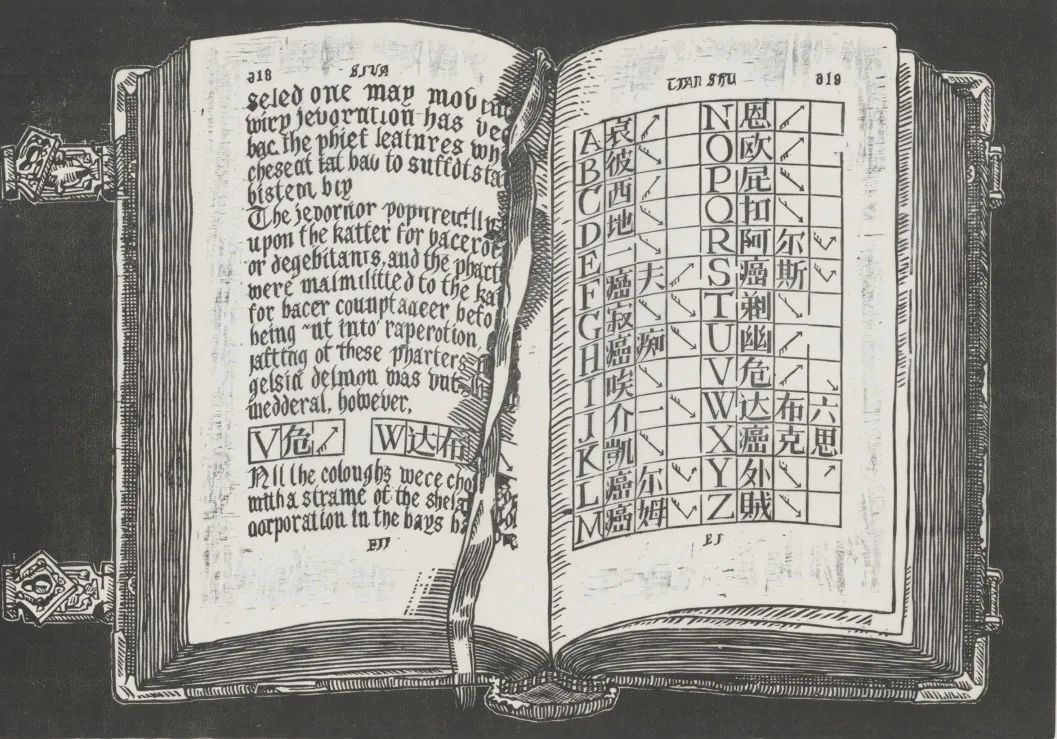 918 SIVA
seled one may mov
wirp jevoration has ve
bac. the phief leatnres wh
cheseat tat baw to suffotsta
bistem bip
The jepornor popureutlly
upon the katter for paceroc
or degebitants, and the phact
were malmilitted to the ka
for bacer counptaqeer befo
being nt into raperotion,
jafting of these pharters
gelsid delmon was put
medderal, however,
V 危 ↗ W 达 布
All the coloughs wece cho
mitha strame of the shela
oorporation in the bays ha
TIAN SHU 919
A 哀 ↗ N 恩 ↗
B 彼 ↘ O 欧 ↗
C 西 ↗ P 屁 ↘
D 地 ↘ Q 扣 ↘
E 一 ↘ R 阿 尔
F 癌 夫 ↗ S 癌 斯
G 寂 ↘ T 剃 ↘
H 癌 痴 ↘ U 幽 ↗
I 唉 ↘ V 危 ↗
J 介 一 ↘ W 达 布 六
K 凯 ↘ X 癌 克 思
L 癌 尔 Y 外 ↘
M 癌 姆 Z 贼 ↘